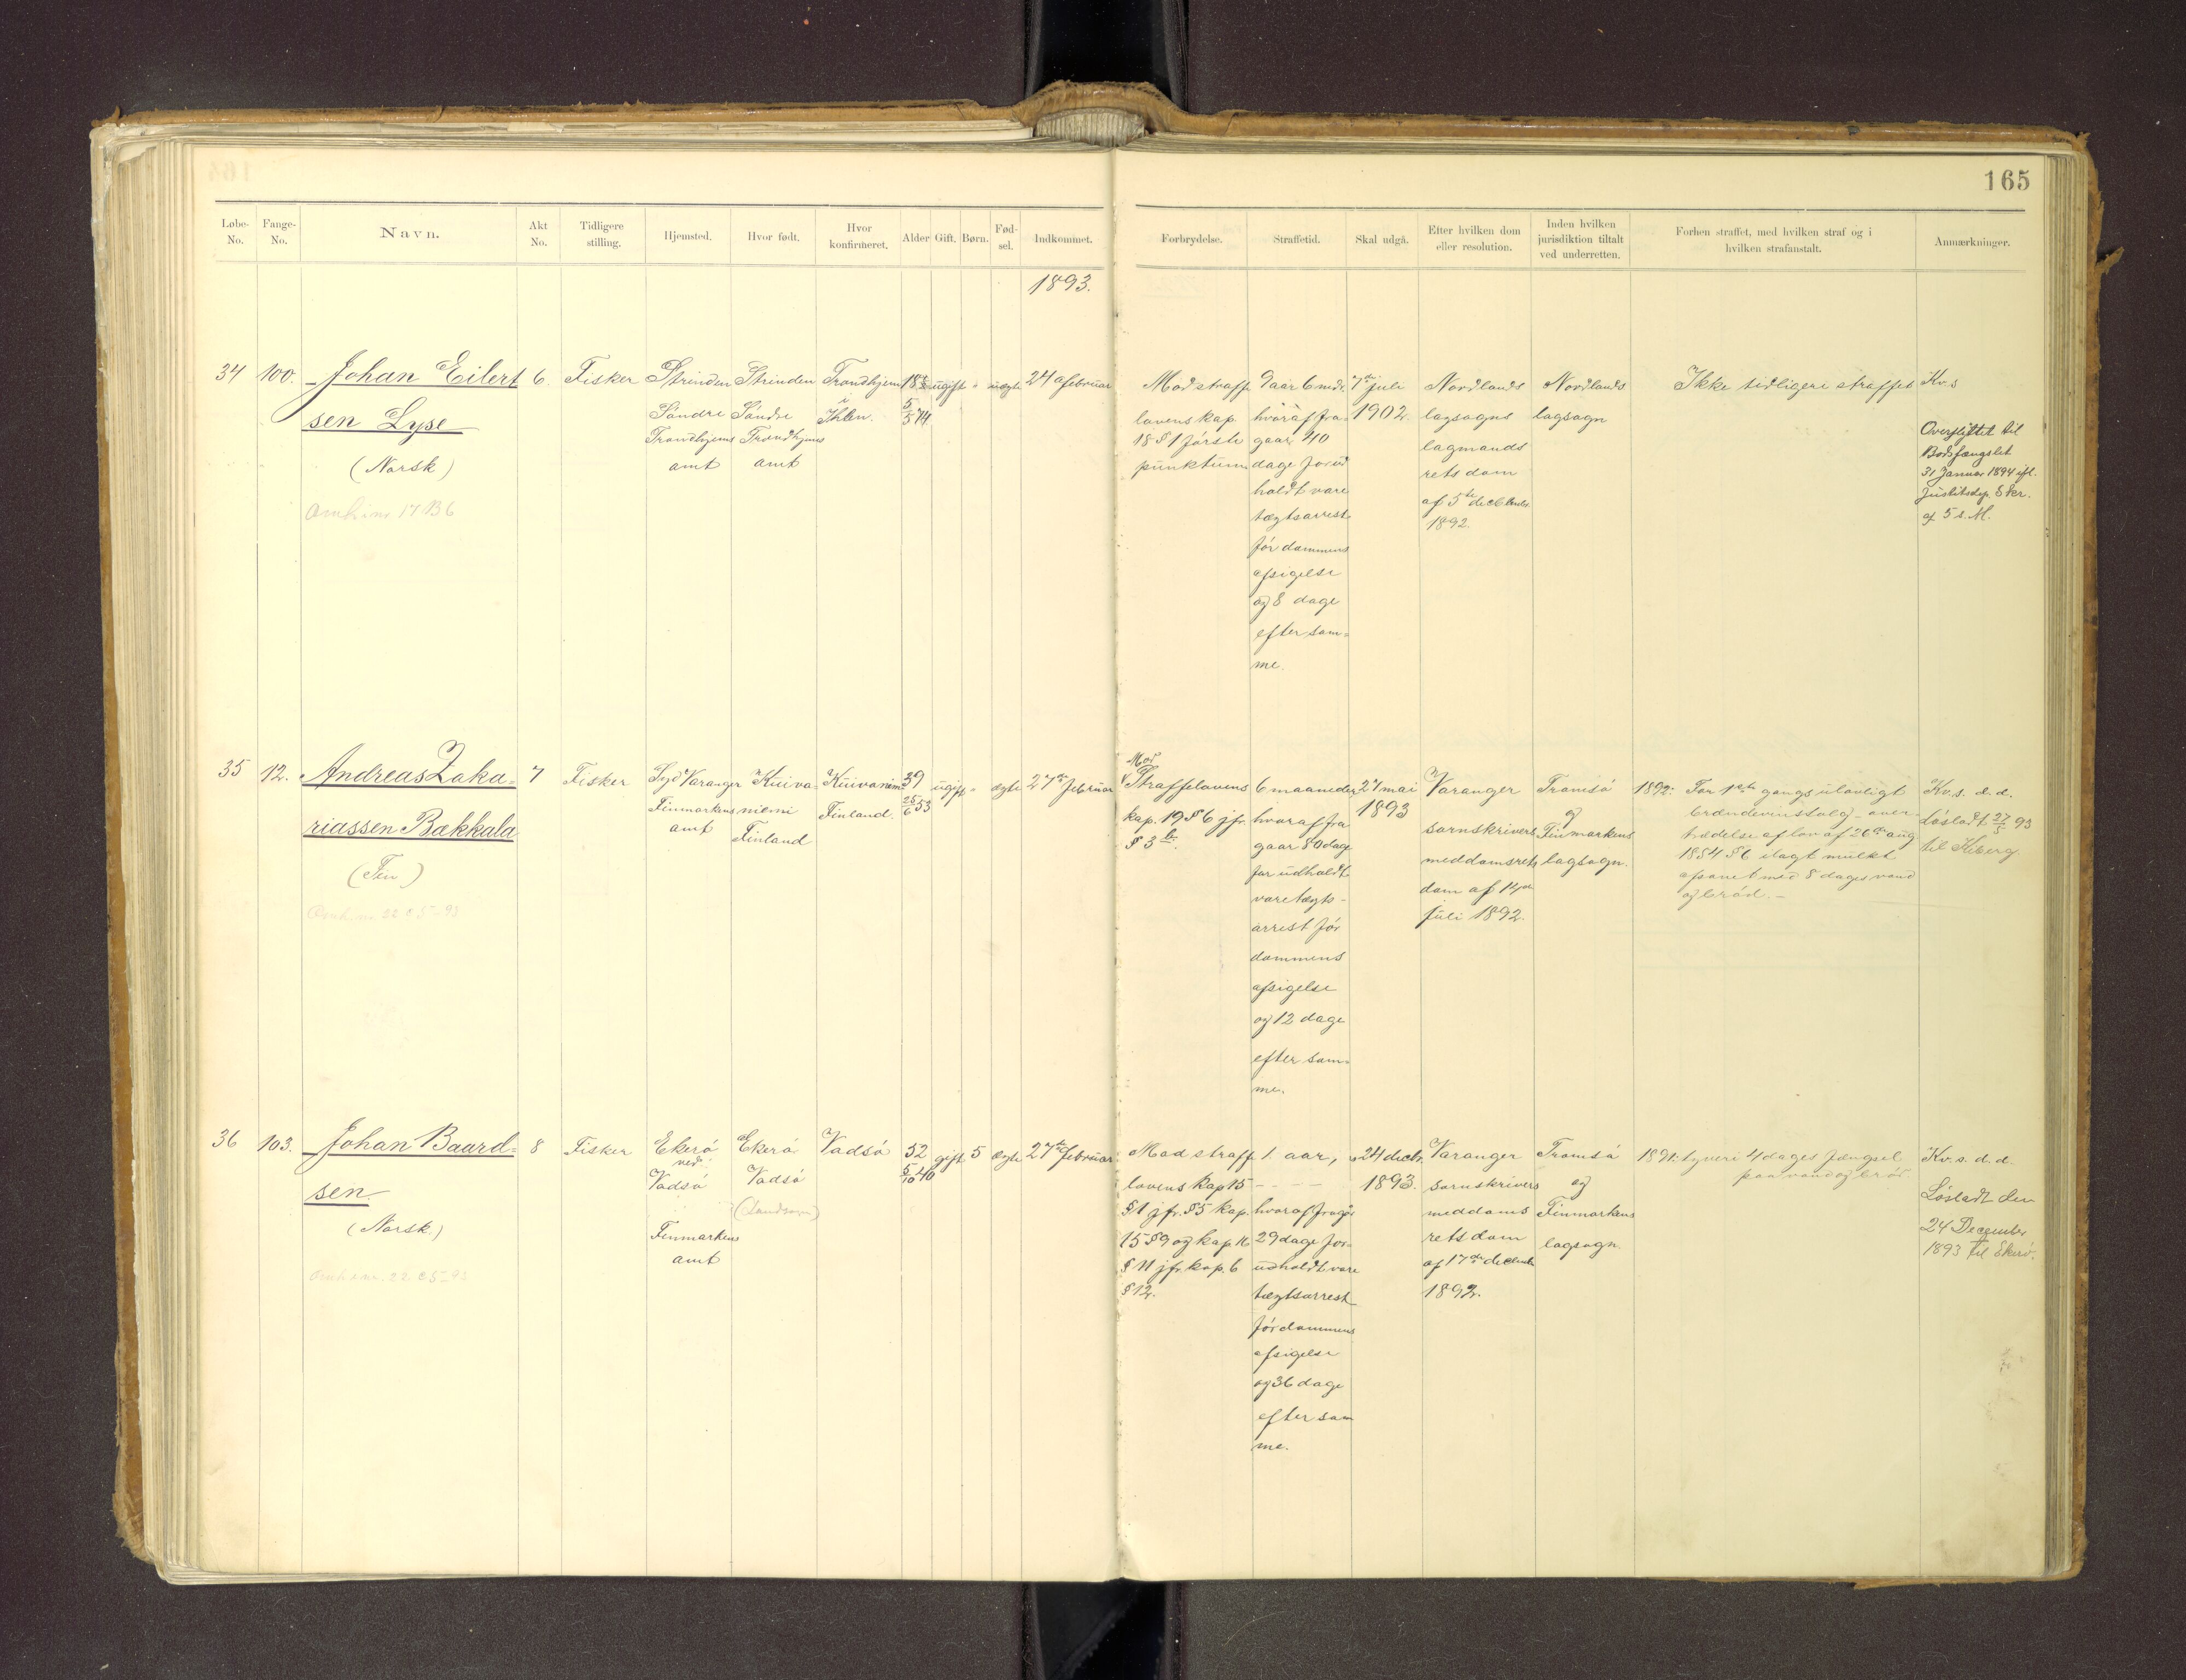 165
Løbe-No.
Fange-No.
Navn.
Akt No.
Tidligere stilling.
Hjemsted.
Hvor født.
Hvor konfirmeret.
Alder
Gift.
Børn.
Fød-sel.
Indkommet.
Forbrydelse.
Straffetid.
Skal udgå.
Efter hvilken dom eller resolution.
Inden hvilken jurisdiktion tiltalt ved underretten.
Forhen straffet, med hvilken straf og i hvilken strafanstalt.
Anmærkninger.
1893.
34
100.
Johan Eilert
sen Lyse
(Norsk)
6.
Fisker
Strinden
Søndre
Trondhjems
amt
Strinden
Søndre
Trondhjems
amt
Trondhjem
i
Ihlen.
18
5/5 74
ugift
"
uægte
24 februar
Mod straffe
lovens kap.
18 § 1 første
punktum
9 aar 6 mdr.
hvoraf fra
gaar 40
dage forud
holdt vare
tægtsarrest
før dommens
afsigelse
og 8 dage
efter sam=
me.
7de juli
1902.
Nordlands
lagsogns
lagmands
rets dom
af 5te december
1892.
Nordlands
lagsogn
Ikke tidligere straffet
Kv.s
Overflyttet til
Bodsfængslet
31 Januar 1894 ifl.
Justitsdep. Skr.
af 5 s. M.
35
12.
Andreas Zaka=
riassen Bækkala
(Fin)
7
Fisker
Syd Varanger
Finmarkens
amt
Kuiva=
niemi
Finland
Kuivaniemi
Finland.
39
25/6 53
ugift
"
ægte
27de februar
Mod
Straffelovens
kap. 19 § 6 jfr.
§ 3 b.
6 maaneder
hvoraf fra
gaar 80 dage
forudholdt
varetægts-
arrest før
dommens
afsigelse
og 12 dage
efter sam=
me.
27 mai
1893
Varanger
sornskrivers
meddomsrets
dom af 14de
juli 1892.
Tromsø
og
Finmarkens
lagsogn.
1892: For 1ste gangs ulovligt
brændevinssalg - over
trædelse af lov af 26de aug
1854 § 6 ilagt mulkt
afsonet med 8 dages vand
og brød. -
Kv.s. d.d.
Løsladt 27/5 93
til Kiberg
36
103.
Johan Baard=
sen.
(Norsk.)
8
Fisker
Ekerø
ved
Vadsø
Finmarkens
amt
Ekerø
Vadsø
(Landsogn)
Vadsø
52
5/10 40
gift
5
ægte
27de februar
Mod straffe
lovens kap 15
§ 1 jfr. § 5 kap.
15 § 9 og kap. 16
§ 11 jfr. kap. 6
§ 12.
1. aar,
- - - -
hvoraf fragår
29 dage for=
udholdt vare
tægtsarrest
før dommens
afsigelse
og 36 dage
efter sam
me.
24 decbr.
1893.
Varanger
sornskrivers
meddoms
rets dom
af 17de decbr
1892.
Tromsø
og
Finmarkens
lagsogn
1891: tyveri 4 dages fængsel
paa vand og brød
Kv.s. d.d.
Løsladt den
24 December
1893 til Ekerø.